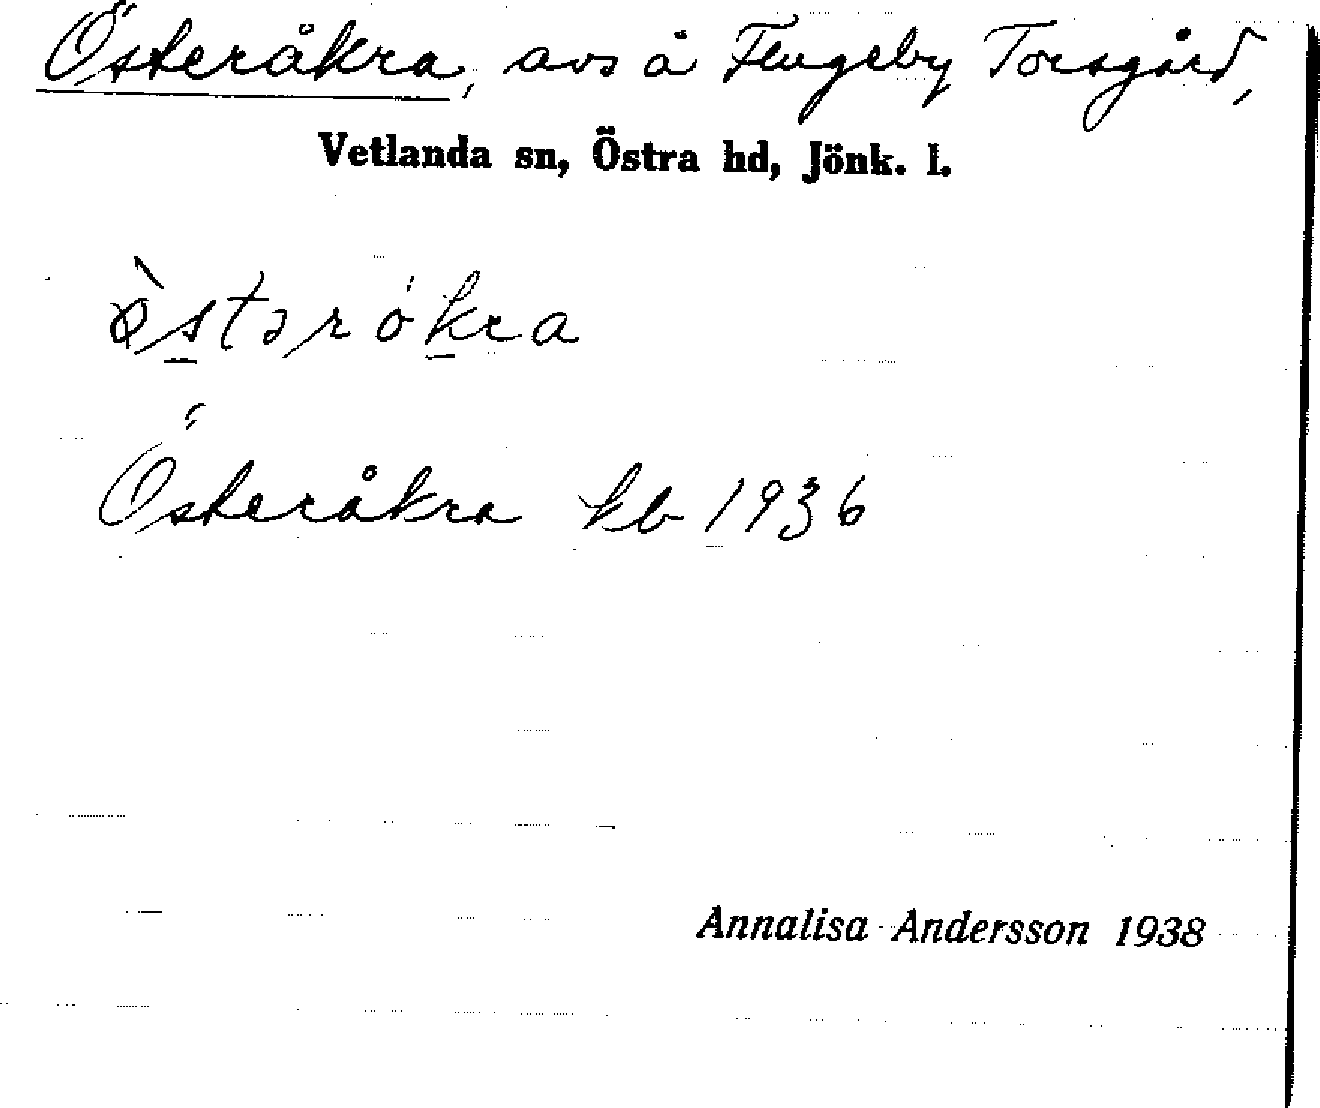 Österåkra, avs å Flugeby Torsgård,
Vetlanda sn, Östra hd, Jönk. l.
ø̀stərókra
Österåkra kb 1936
Annalisa Andersson 1938